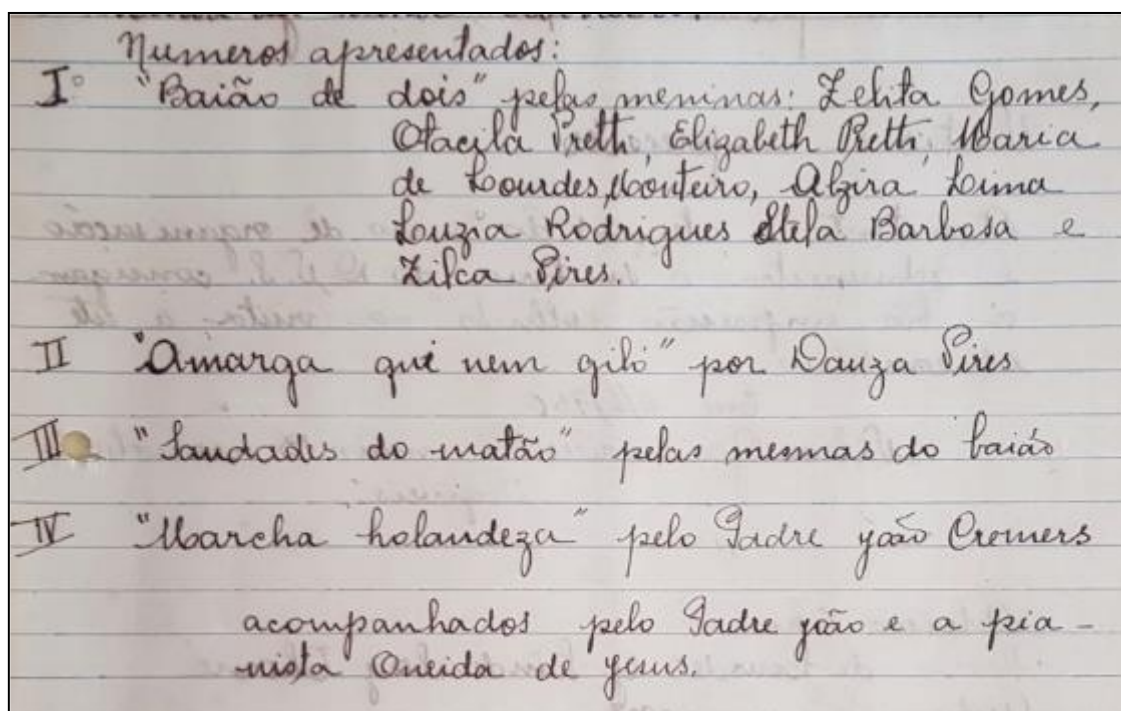 Numeros apresentados:
I° "Baião de dois" pelas meninas: Zelita Gomes,
Otacila Pretti, Elizabeth Pretti, Maria
de Lourdes Monteiro, Alzira Lima
Luzia Rodrigues Stela Barbosa e
Zilca Pires.
II "Amarga qui nem giló" por Dauza Pires
III "Saudades do matão" pelas mesmas do baião
IV "Marcha holandeza" pelo Padre joão Cremers
acompanhados pelo Padre joão e a pia-
nista Oneida de jesus.